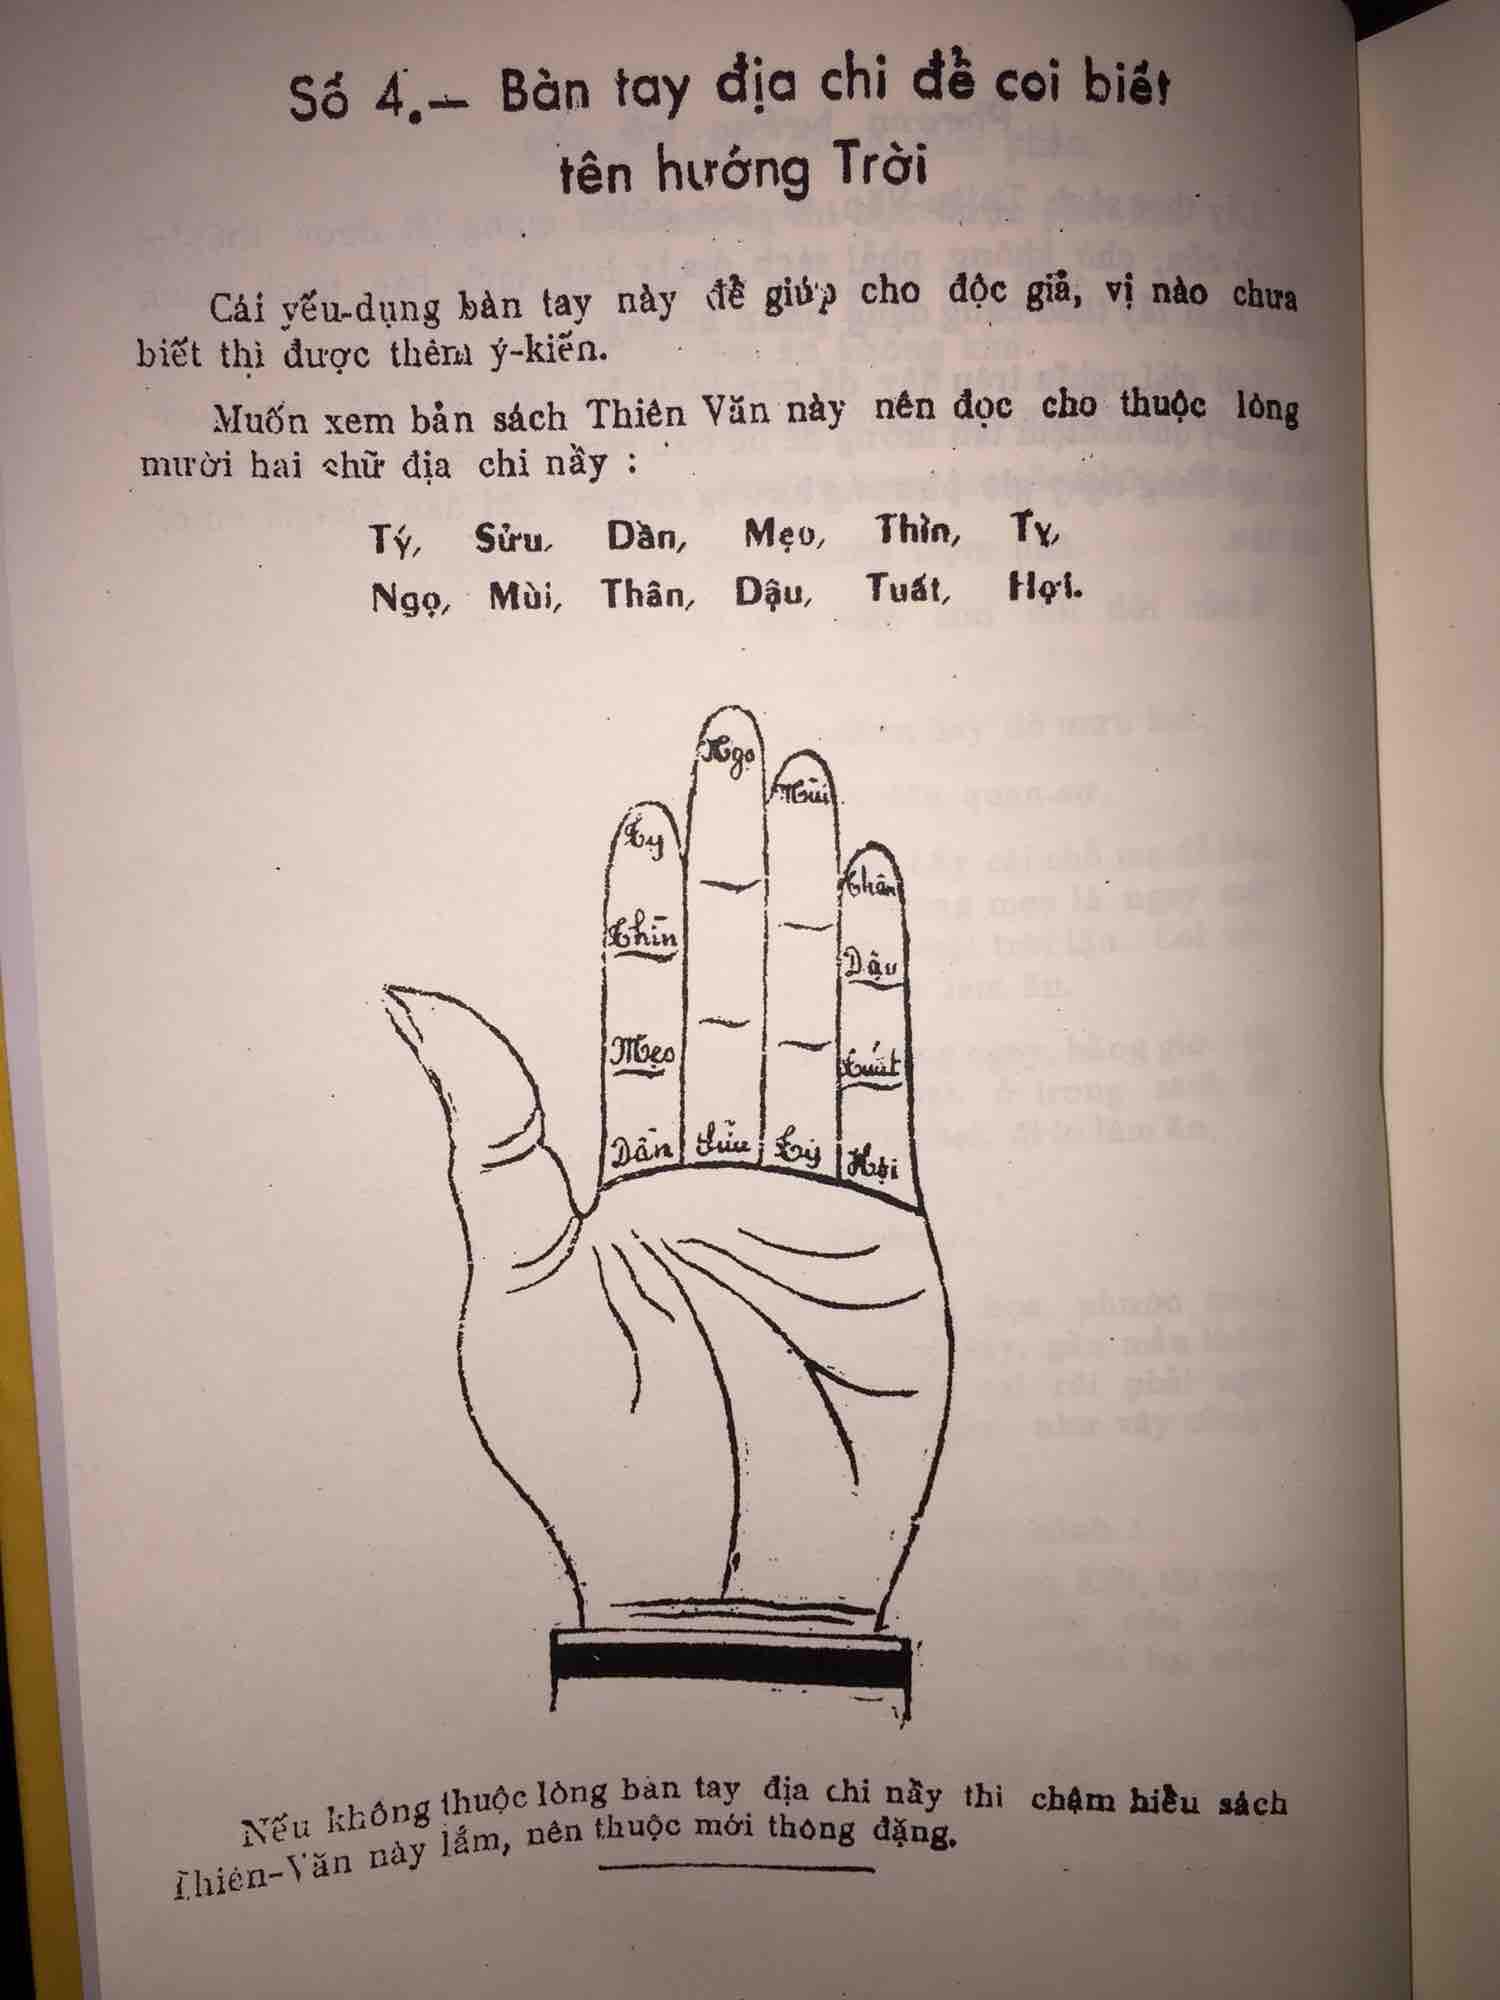 Số 4.— Bàn tay địa chi để coi biết
tên hướng Trời
Cái yếu-dụng bàn tay này để giúp cho độc giả, vị nào chưa
biết thì được thêm ý-kiến.
Muốn xem bản sách Thiên Văn này nên đọc cho thuộc lòng
mười hai chữ địa chi nầy :
Tý, Sửu, Dần, Mẹo, Thìn, Tỵ,
Ngọ, Mùi, Thân, Dậu, Tuất, Hợi.
Ngọ
Mùi
Tỵ
Thân
Thìn
Dậu
Mẹo
Tuất
Dần Sửu Tý Hợi
Nếu không thuộc lòng bàn tay địa chi nầy thì chậm hiểu sách
Thiên-Văn này lắm, nên thuộc mới thông đặng.